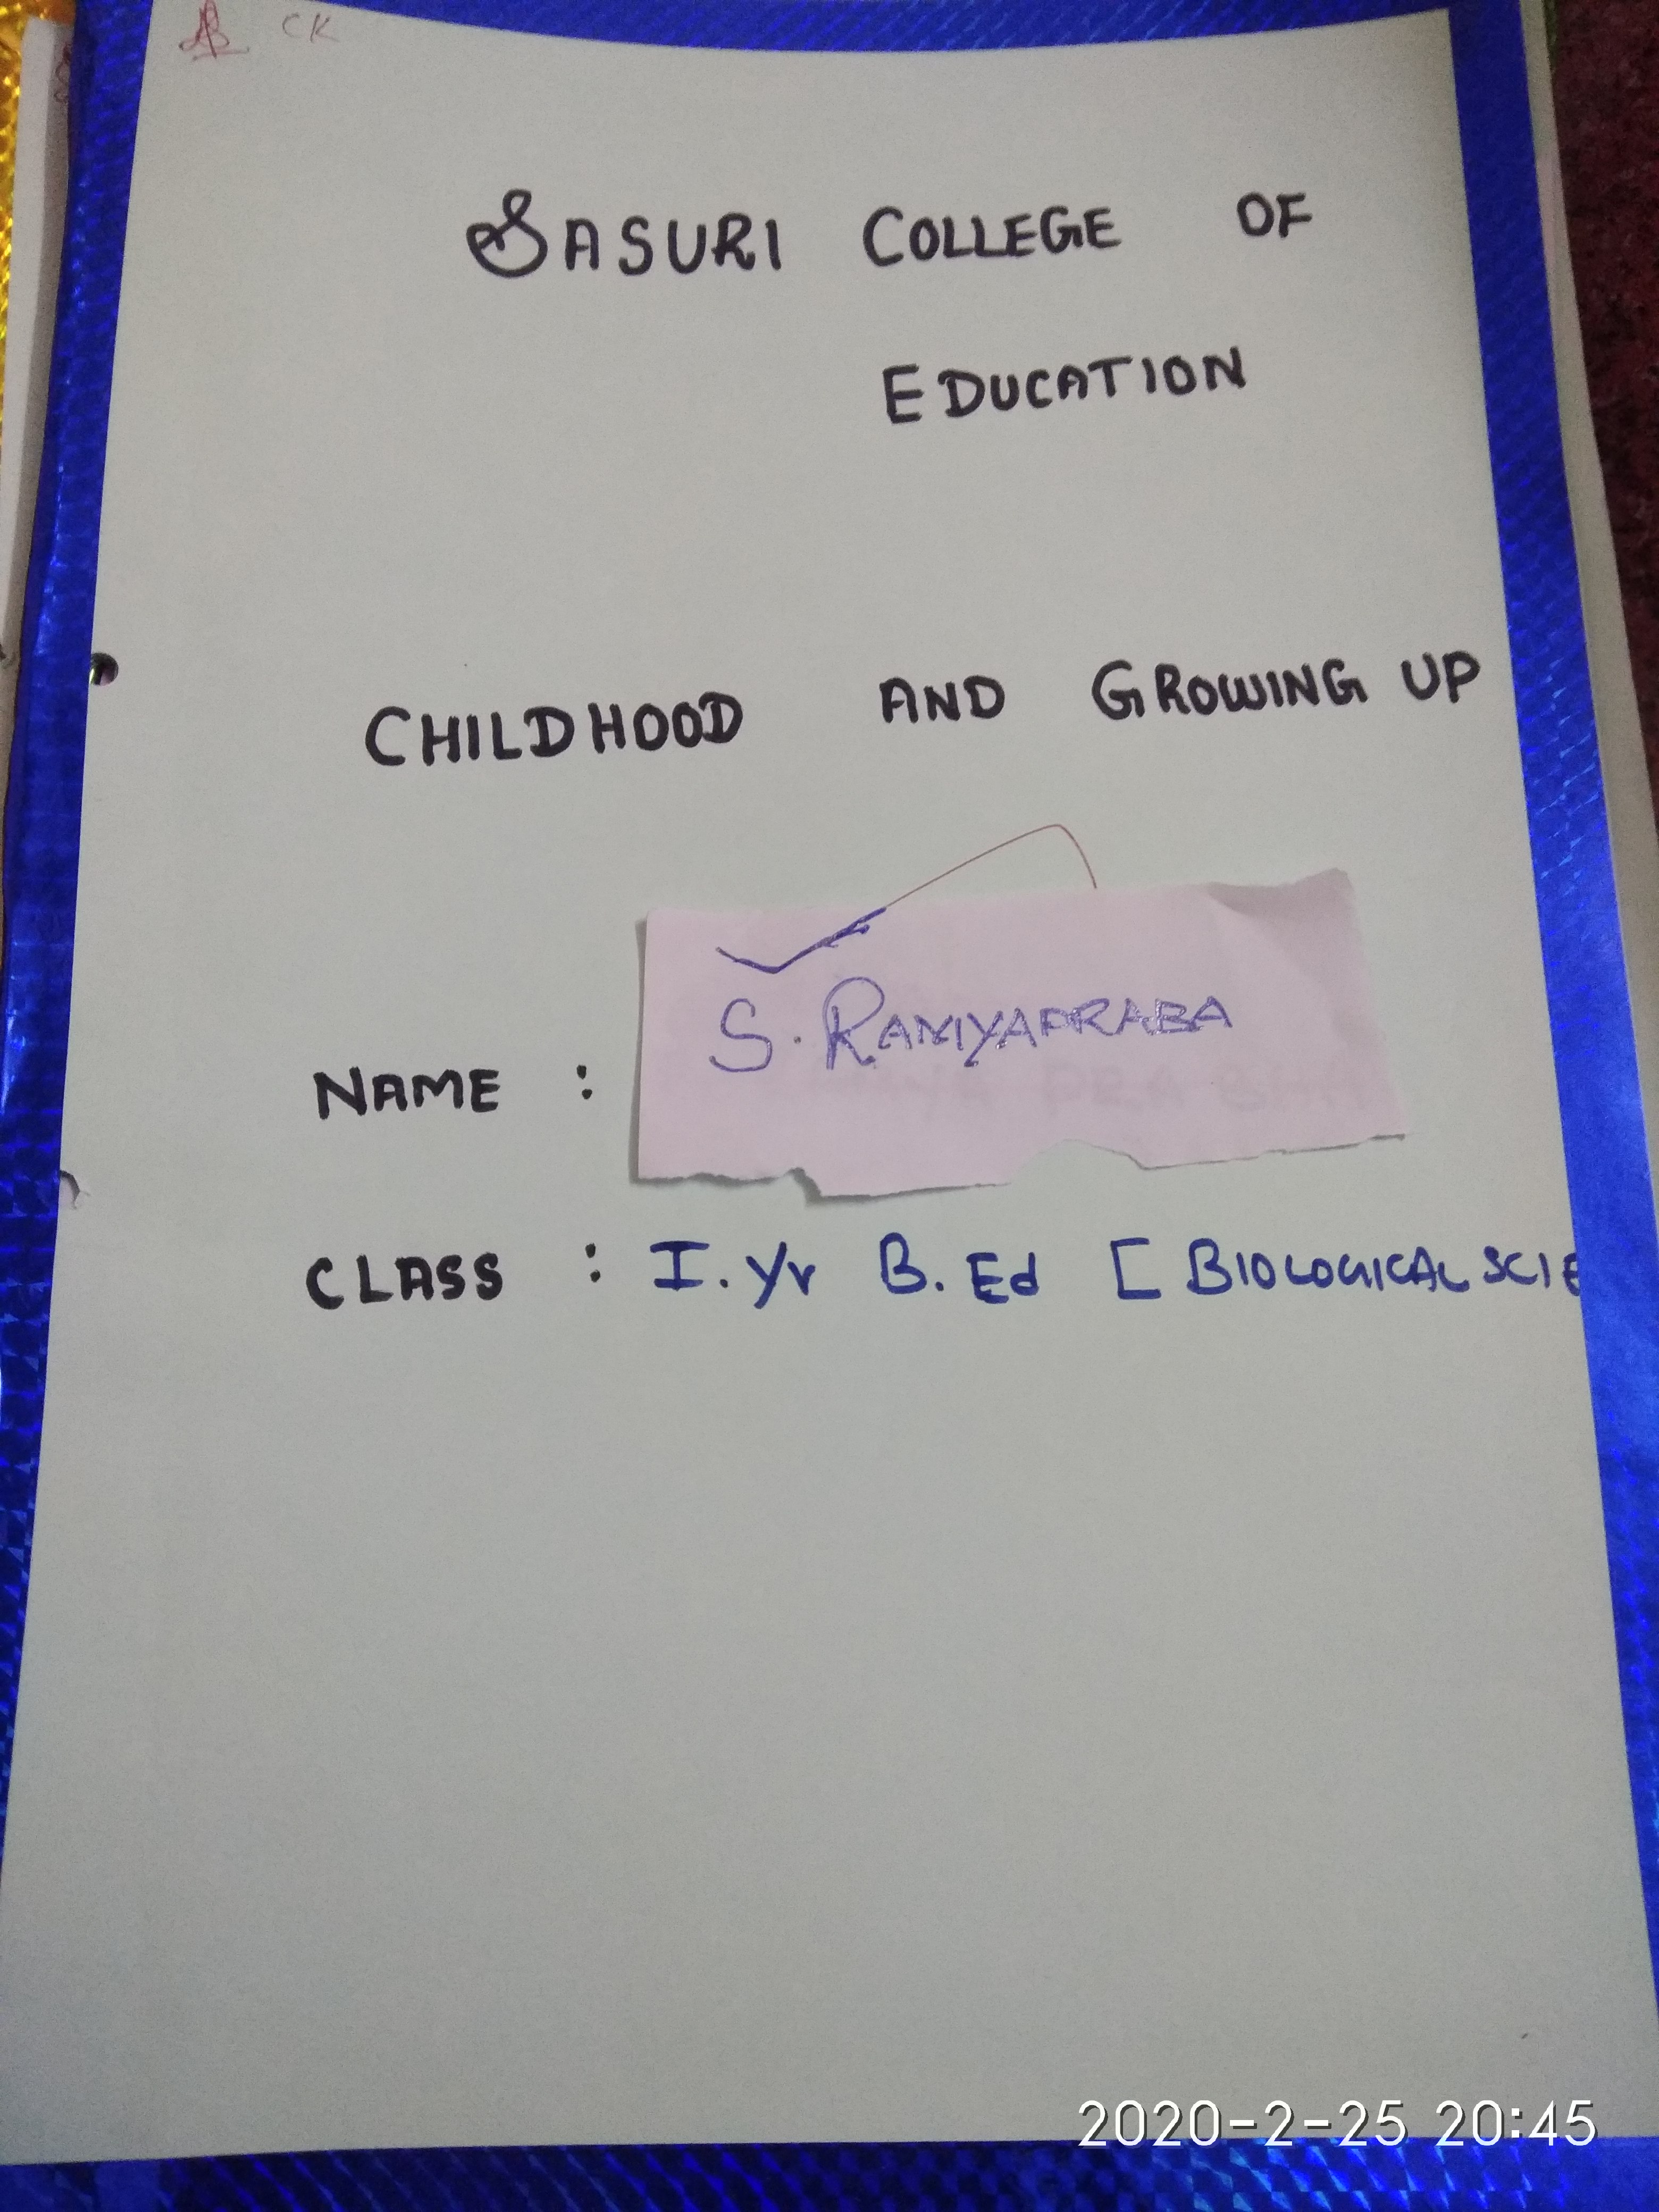 CK
SASURI COLLEGE OF
EDUCATION
CHILDHOOD AND GROWING UP
NAME : S. RAMYAPRABA
CLASS : I. Yr B. Ed [ BIOLOGICAL SCIE
2020-2-25 20:45